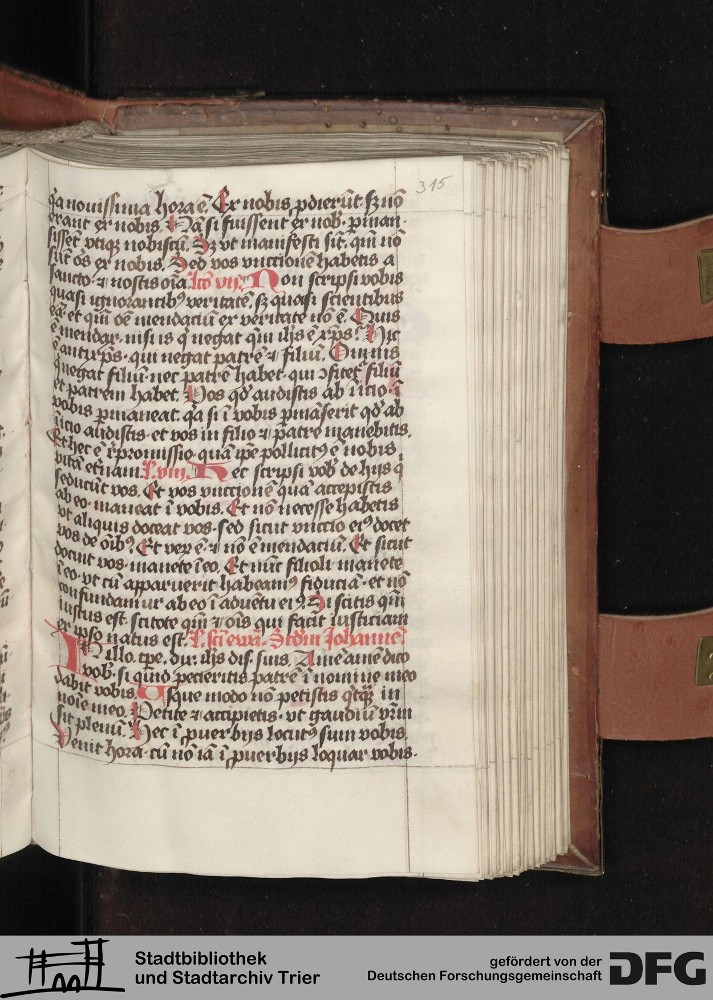 315
q̄a nouissima hora ē. Ex nobis ꝓdierūt sꝫ nō
erant ex nobis. Nā si fuissent ex nob̄. ꝑman-
sissēt vtiqꝫ nobiscū. Sꝫ vt manifesti sīt. qm̄ nō
sūt oēs ex nobis. Sed vos vnctionē habetis a
sancto ⁊ nostis oīa. lcō vij. Non scripsi vobis
quasi ignorantibꝰ veritatē. sꝫ quasi scientibus
eā. et qm̄ oē mendaciū ex veritate nō ē. Quis
ē mendax. nisi is q̄ negat qm̄ ihs ē xp̄s. Hic
ē antixp̄s. qui negat patrē ⁊ filiū. Omnis
q̄ negat filiū. nec patrē habet. qui ꝯfitet̄ filiū
et patrem habet. Vos qd̄ audistis ab īitio. ī
vobis ꝑmaneat. q̄a si ī vobis ꝑmāserit qd̄ ab
īitio audistis. et vos in filio ⁊ patre manebitis.
Et hec ē reꝓmissio. quā ip̄e pollicitꝰ ē nobis
vitā et̄nam. l. viij. Hec scripsi vob̄ de hijs q̄
seducūt vos. Et vos vnctionē quā accepistis
ab eo. maneat ī vobis. Et nō necesse habetis
vt aliquis doceat vos. sed sicut vnctio eiꝰ docet
vos de oībꝰ. Et veꝝ ē. ⁊ nō ē mendaciū. Et sicut
docuit vos. manete ī eo. Et nūc filioli manete
ī eo. vt cū apparuerit habeamꝰ fiduciā. et nō
confundamur ab eo ī aduētu eiꝰ. Si scitis qm̄
iustus est. scitote qm̄ ⁊ oīs qui facit iusticiam
ex ipso natus est. l. scī ewā. Scdm Johannē
In illo tp̄e. dix̄. ihs dis̄. suis. Amē amē dico
vob̄. si quid pecieritis patrē ī nomine meo
dabit vobis. Vsque modo nō petistis qͥcqͣꝫ in
noīe meo. Petite ⁊ accipietis. vt gaudiū vr̄m
sit plenū. Hec ī ꝓuerbijs locutꝰ sum vobis.
Venit hora. cū nō iā ī ꝓuerbijs loquar vobis.
Stadtbibliothek
und Stadtarchiv Trier
gefördert von der
Deutschen Forschungsgemeinschaft
DFG